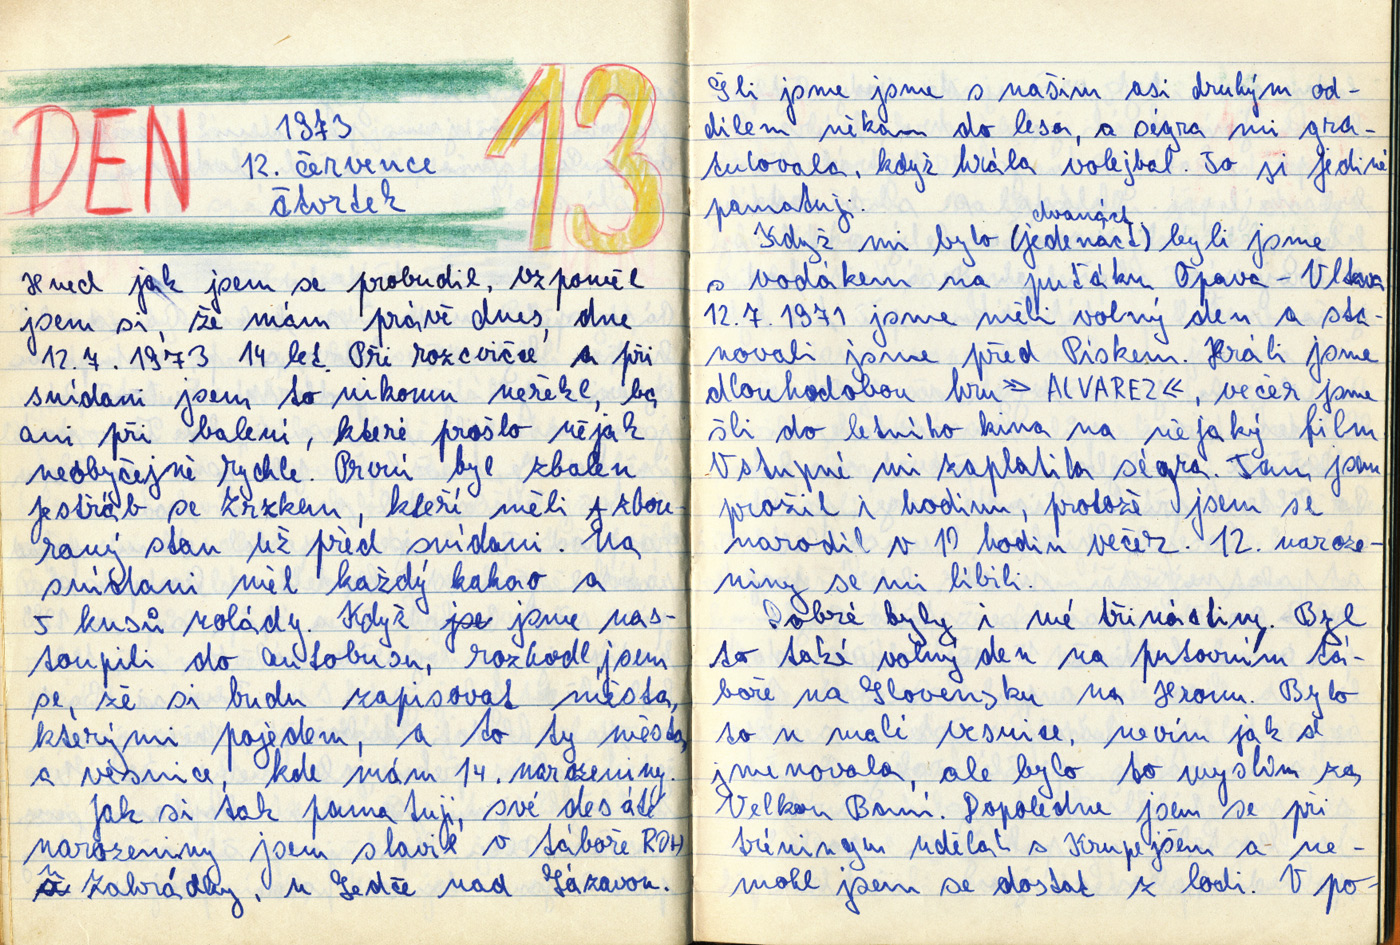 DEN 13
1973
12. července
čtvrtek
Hned jak jsem se probudil, vzpoměl
jsem si, že mám právě dnes dne
12.7.1973 14 let. Při rozcvičce a při
snídani jsem to nikomu neřekl, ba
ani při balení, které prošlo nějak
neobyčejně rychle. První byl zbalen
Jestřáb se Zrzkem, kteří měli zbou-
raný stan už před snídaní. Na
snídani měl každý kakao a
5 kusů rolády. Když jse jsme nas-
toupili do autobusu, rozhodl jsem
se, že si budu zapisovat města,
kterými pojedem, a to ty města
a vesnice, kde mám 14. narozeniny.
Jak si tak pamatuji, své desáté
narozeniny jsem slavil v táboře ROH
Zahrádky, u Ledče nad Sázavou.
Šli jsme jsme s našim asi druhým od-
dílem někam do lesa, a ségra mi gra-
tulovala, když hrála volejbal. To si jedině
pamatuji.
dvanáct
Když mi bylo (jedenáct) byli jsme
s vodákem na puťáku Opava - Vltava
12.7.1971 jsme měli volný den a sta-
novali jsme před Pískem. Hráli jsme
dlouhodobou hru » ALVAREZ «, večer jsme
šli do letního kina na nějaký film.
Vstupné mi zaplatila ségra. Tam jsem
prožil i hodinu, protože jsem se
narodil v 10 hodin večer. 12. naroze-
niny se mi líbili.
Dobré byly i mé třináctiny. Byl
to také volný den na putovním tá-
boře na Slovensku na Hronu. Bylo
to u malí vesnice, nevím jak se
jmenovala, ale bylo to myslím za
Velkou Baní. Dopoledne jsem se při
tréningu udělal s Krupejšem a ne-
mohl jsem se dostat z lodi. V po-